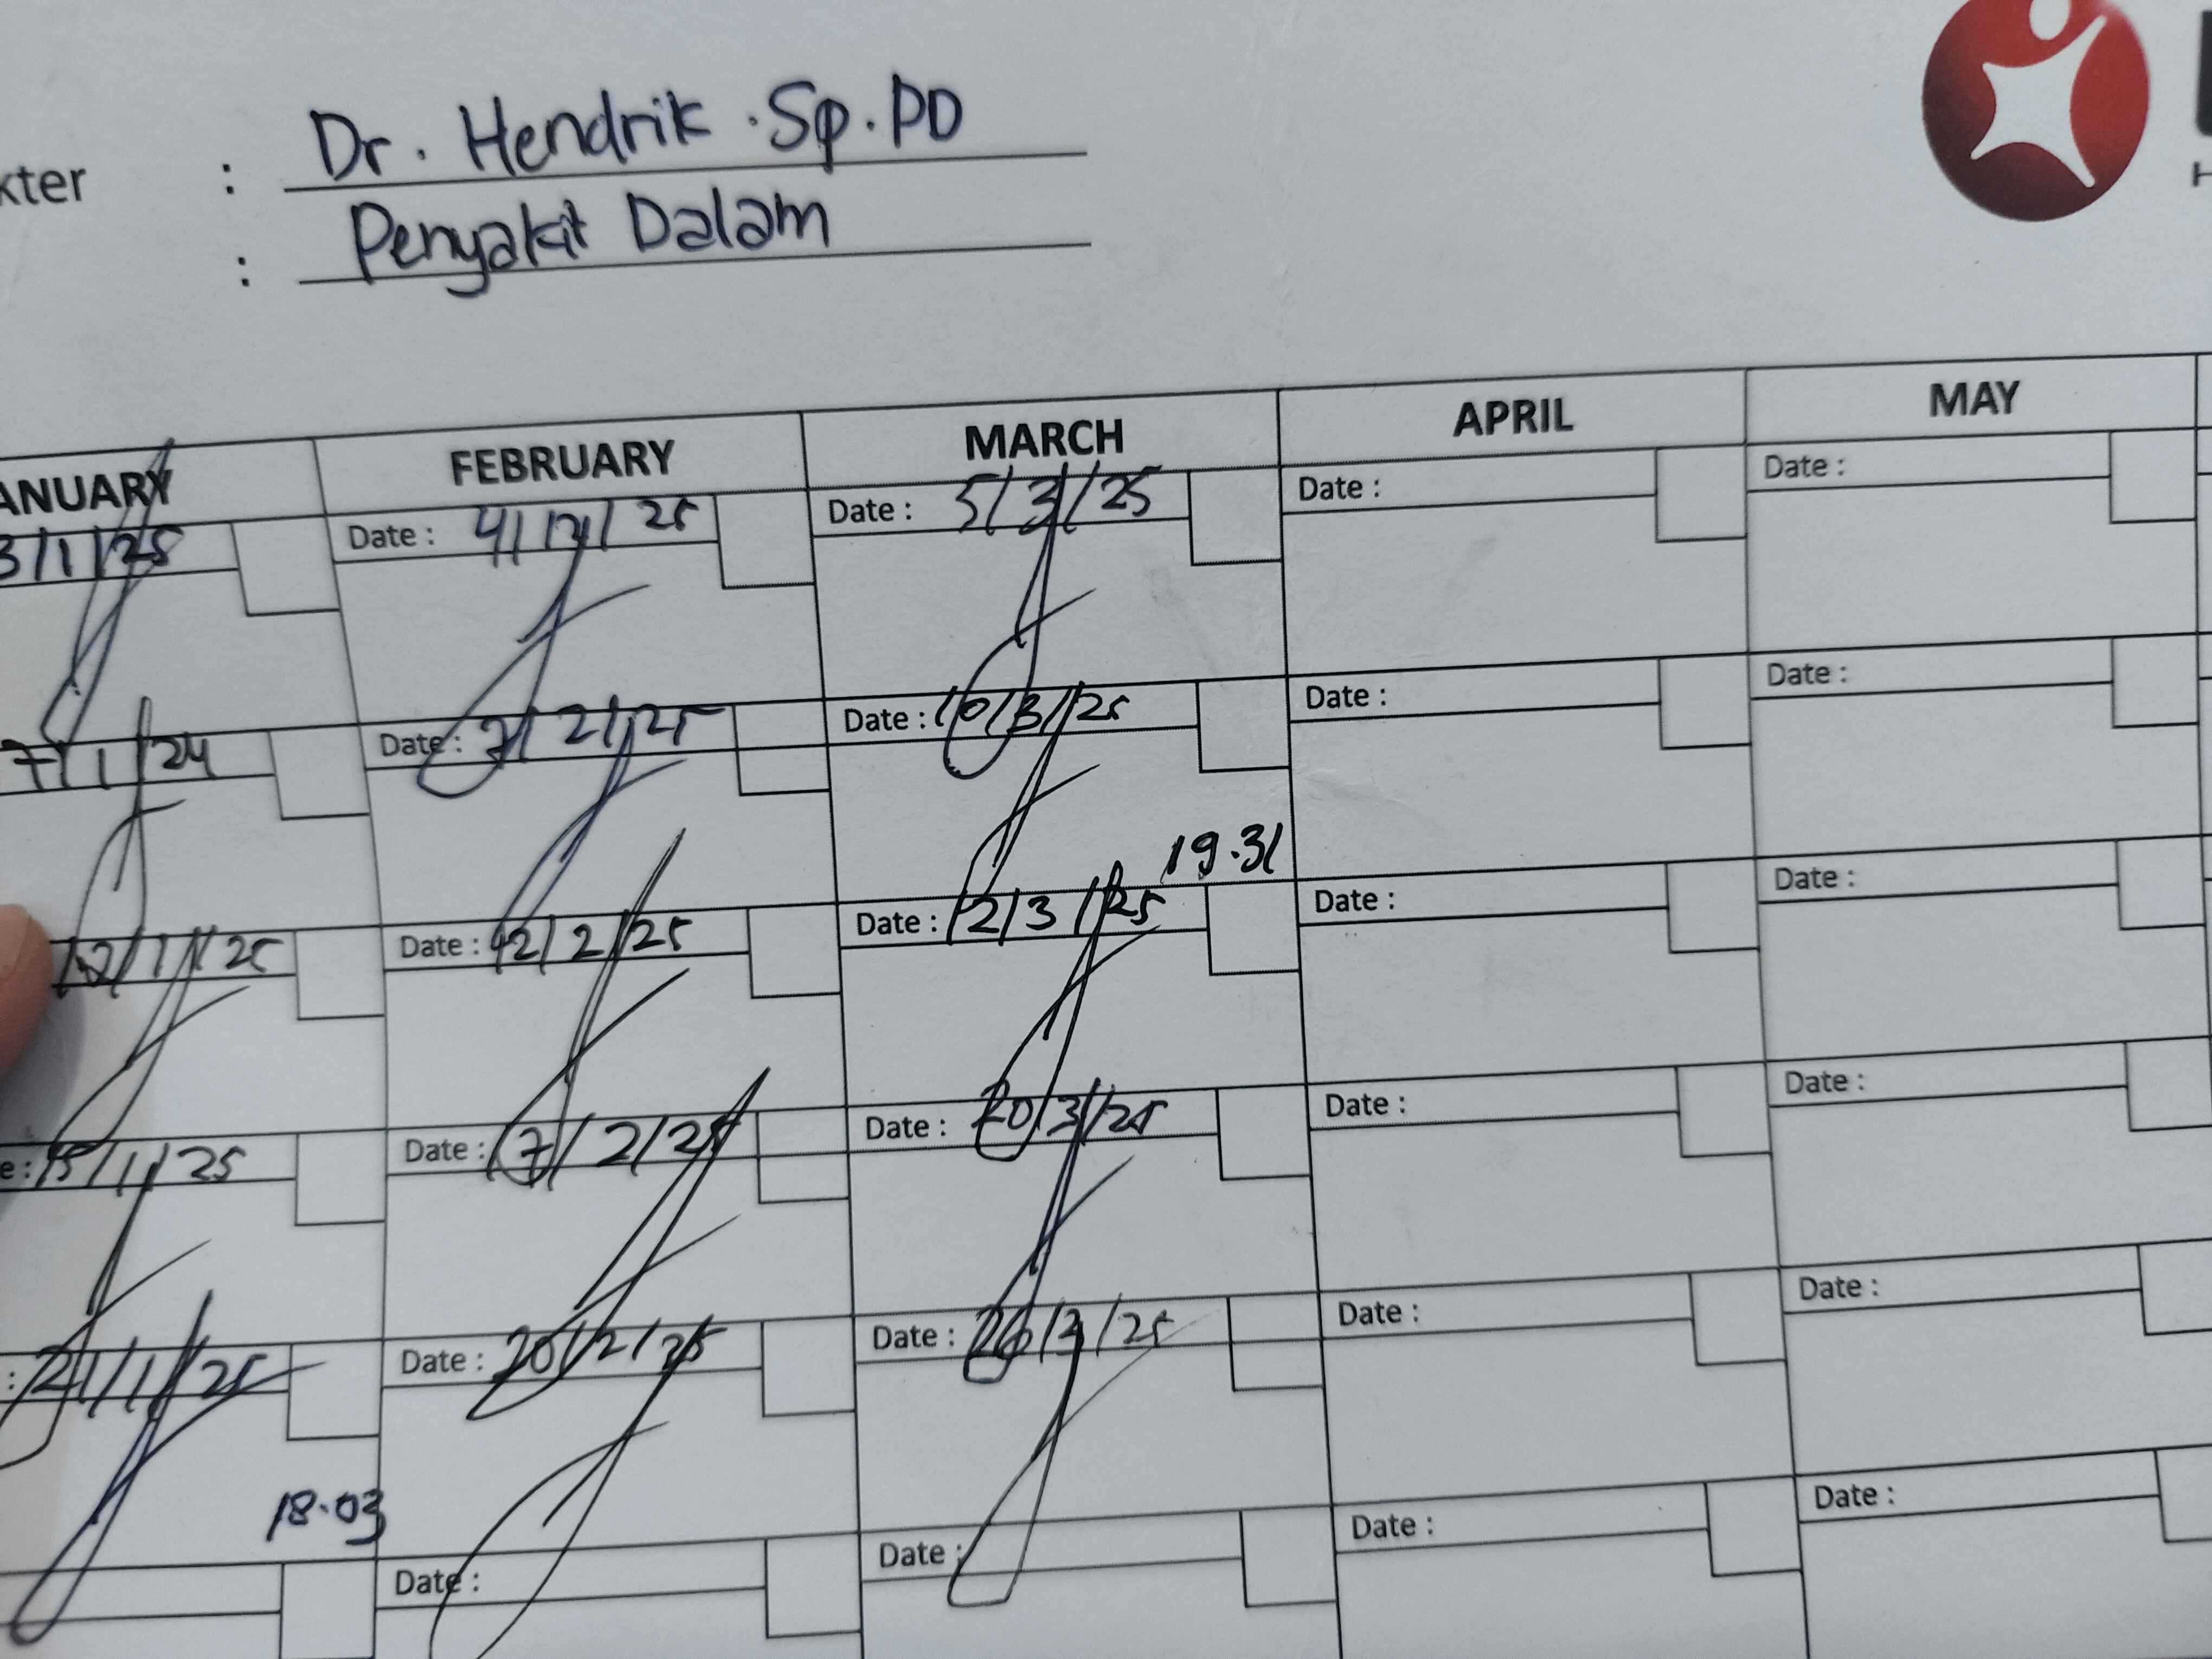 Dr. Hendrik . Sp. PD
kter :
: Penyakit Dalam
ANUARY FEBRUARY MARCH APRIL MAY
3/1/25 Date : 4/2/25 Date : 5/3/25 Date : Date :
7/1/24 Date : 7/2/25 Date : 10/3/25 Date : Date :
19.31
12/1/25 Date : 12/2/25 Date : 12/3/25 Date : Date :
e : 15/1/25 Date : 17/2/25 Date : 20/3/25 Date : Date :
: 21/1/25 Date : 20/2/25 Date : 26/3/25 Date : Date :
18.03
Date : Date : Date : Date :